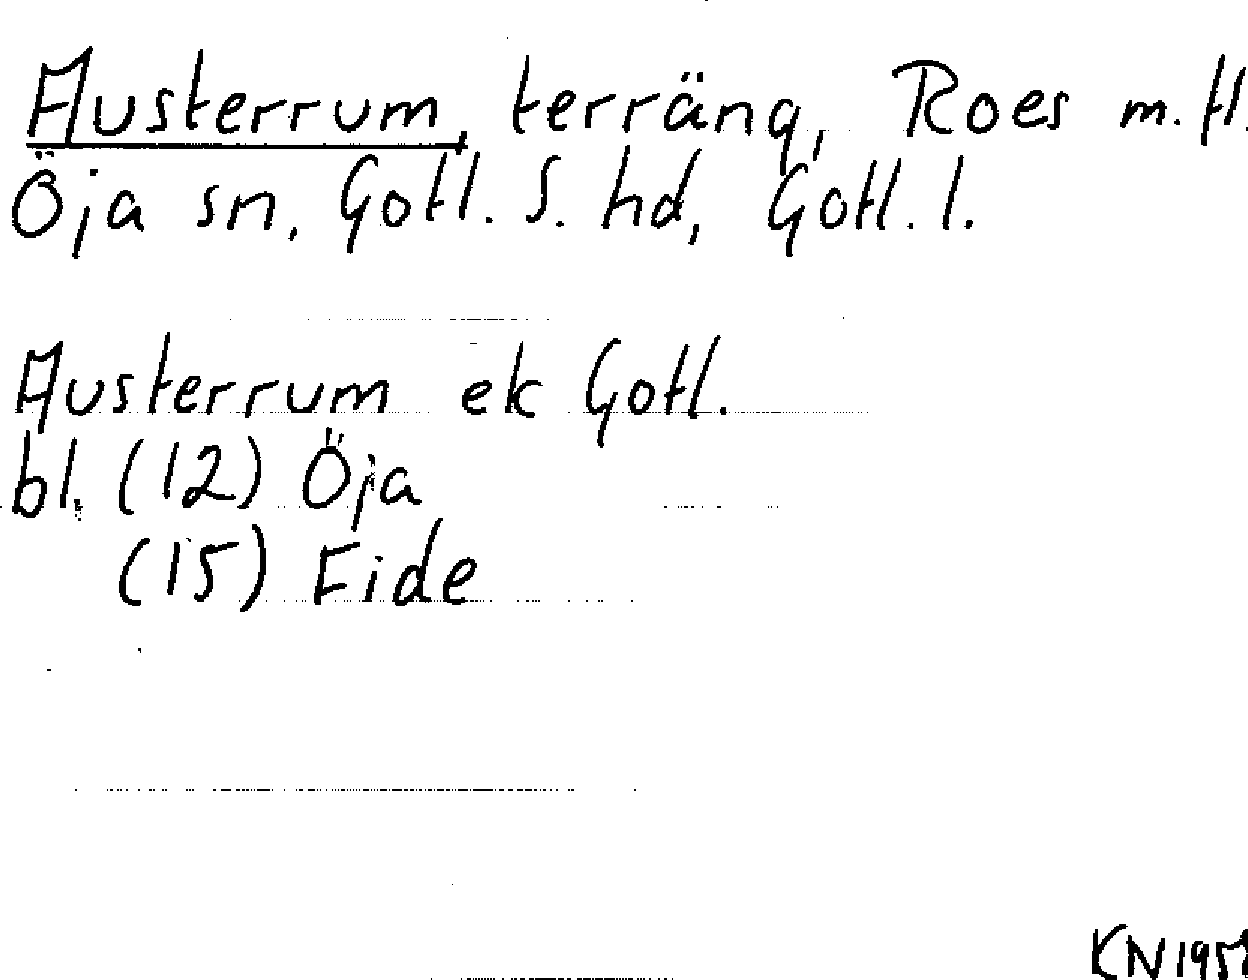 Austerrum, terräng, Roes m.fl.
Öja sn, Gotl. S. hd, Gotl. l.
Austerrum ek Gotl.
bl. (12) Öja
(15) Eide
KN